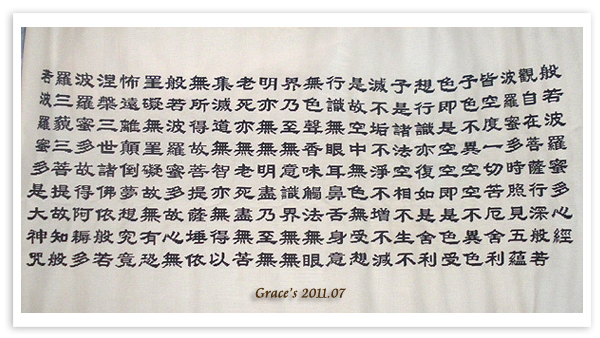 般若波羅蜜多心經
觀自在菩薩行深般若
波羅蜜多時照見五蘊
皆空度一切苦厄舍利
子色不異空空不異色
色即是空空即是色受
想行識亦復如是舍利
子是諸法空相不生不
滅不垢不淨不增不減
是故空中無色無受想
行識無眼耳鼻舌身意
無色聲香味觸法無眼
界乃至無意識界無無
明亦無無明盡乃至無
老死亦無老死盡無苦
集滅道無智亦無得以
無所得故菩提薩埵依
般若波羅蜜多故心無
罣礙無罣礙故無有恐
怖遠離顛倒夢想究竟
涅槃三世諸佛依般若
波羅蜜多故得阿耨多
羅三藐三菩提故知般
若波羅蜜多是大神咒
Grace's 2011.07